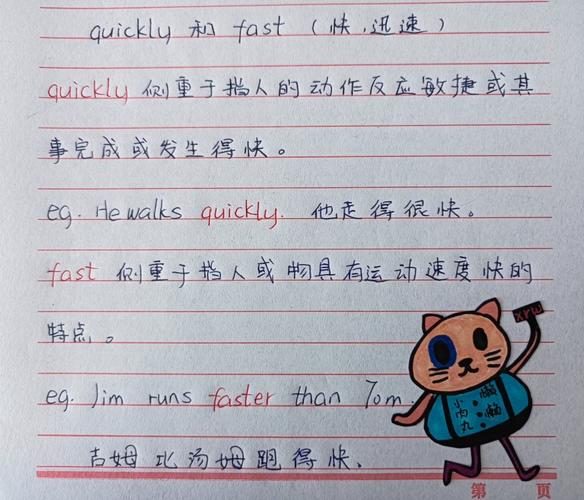 quickly 和 fast (快,迅速)
quickly 侧重于指人的动作反应敏捷或其
事完成或发生得快。
eg. He walks quickly. 他走得很快。
fast 侧重于指人或物具有运动速度快的
特点。
eg. Jim runs faster than Tom.
吉姆比汤姆跑得快、
xrw
小肉丸
第 页